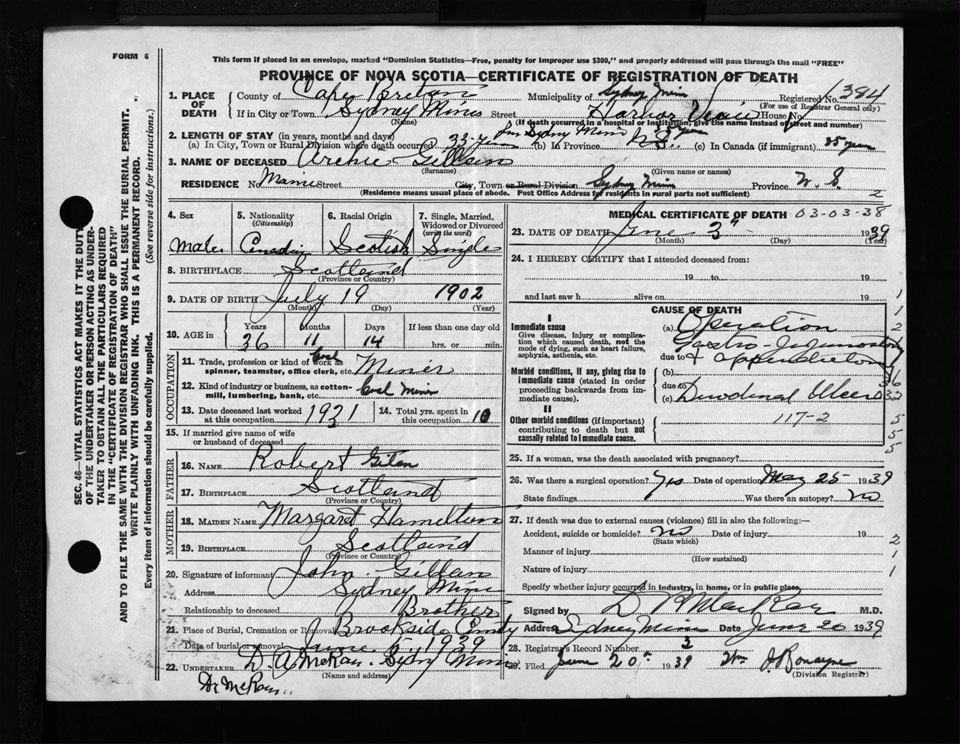 FORM 6
This form if placed in an envelope, marked "Dominion Statistics—Free, penalty for improper use $300," and properly addressed will pass through the mail "FREE"
PROVINCE OF NOVA SCOTIA—CERTIFICATE OF REGISTRATION OF DEATH
1. PLACE OF DEATH
County of Cape Breton Municipality of Sydney Mines Registered No. 384
(For use of Registrar General only)
If in City or Town Sydney Mines Street Harbor View House No.
(Name) (If death occurred in a hospital or institution, give the name instead of street and number)
2. LENGTH OF STAY (in years, months and days)
(a) In City, Town or Rural Division where death occurred 33 years (b) In Province N.S. (c) In Canada (if immigrant) 35 years
3. NAME OF DECEASED Archie Gillan
(Surname) (Given name or names)
RESIDENCE No. Main Street City, Town or Rural Division Sydney Mines Province N.S.
(Residence means usual place of abode. Post Office Address for residents in rural parts not sufficient) 2
4. Sex
Male
5. Nationality
(Citizenship)
Canadian
6. Racial Origin
Scotish
7. Single, Married, Widowed or Divorced
(write the word)
Single
8. BIRTHPLACE Scotland
(Province or Country)
9. DATE OF BIRTH July 19 1902
(Month) (Day) (Year)
10. AGE in
Years Months Days If less than one day old
36 11 14 hrs. or min.
OCCUPATION
11. Trade, profession or kind of work as spinner, teamster, office clerk, etc. Coal Miner
12. Kind of industry or business, as cotton-mill, lumbering, bank, etc. Coal Mine
13. Date deceased last worked at this occupation 1931
14. Total yrs. spent in this occupation 10
15. If married give name of wife or husband of deceased
FATHER
16. NAME Robert
17. BIRTHPLACE Scotland
(Province or Country)
MOTHER
18. MAIDEN NAME Margaret Hamelton
19. BIRTHPLACE Scotland
(Province or Country)
20. Signature of informant John Gillan
Address Sydney Mines
Relationship to deceased Brother
21. Place of Burial, Cremation or Removal Brookside Cemty
Date of burial or removal June 1939
22. UNDERTAKER D. A. McKay. Sydny Mines
(Name and address)
Dr McKay
MEDICAL CERTIFICATE OF DEATH 03-03-38
23. DATE OF DEATH June 3" 1939
(Month) (Day) (Year)
24. I HEREBY CERTIFY that I attended deceased from:
19 to 19
and last saw h alive on 19
CAUSE OF DEATH
I
Immediate cause
Give disease, injury or complication which caused death, not the mode of dying, such as heart failure, asphyxia, asthenia, etc.
(a) Operation
Gastro-Jejunostomy
due to & Appendectomy
Morbid conditions, if any, giving rise to immediate cause (stated in order proceeding backwards from immediate cause).
(b)
due to
(c) Duodenal Ulcer
II
Other morbid conditions (if important) contributing to death but not causally related to immediate cause.
117-2
25. If a woman, was the death associated with pregnancy?
26. Was there a surgical operation? Yes Date of operation May 25 1939
State findings Was there an autopsy? No
27. If death was due to external causes (violence) fill in also the following:—
Accident, suicide or homicide? no Date of injury 19
(State which)
Manner of injury
(How sustained)
Nature of injury
Specify whether injury occurred in industry, in home, or in public place
Signed by M.D.
Address Sydney Mines Date June 20 1939
28. Registrar's Record Number 2
29. Filed June 20th 1939 Wm
(Division Registrar)
SEC. 46—VITAL STATISTICS ACT MAKES IT THE DUTY
OF THE UNDERTAKER OR PERSON ACTING AS UNDERTAKER TO OBTAIN ALL THE PARTICULARS REQUIRED
IN THE "CERTIFICATE OF REGISTRATION OF DEATH"
AND TO FILE THE SAME WITH THE DIVISION REGISTRAR WHO SHALL ISSUE THE BURIAL PERMIT.
WRITE PLAINLY WITH UNFADING INK. THIS IS A PERMANENT RECORD.
Every item of information should be carefully supplied. (See reverse side for instructions.)